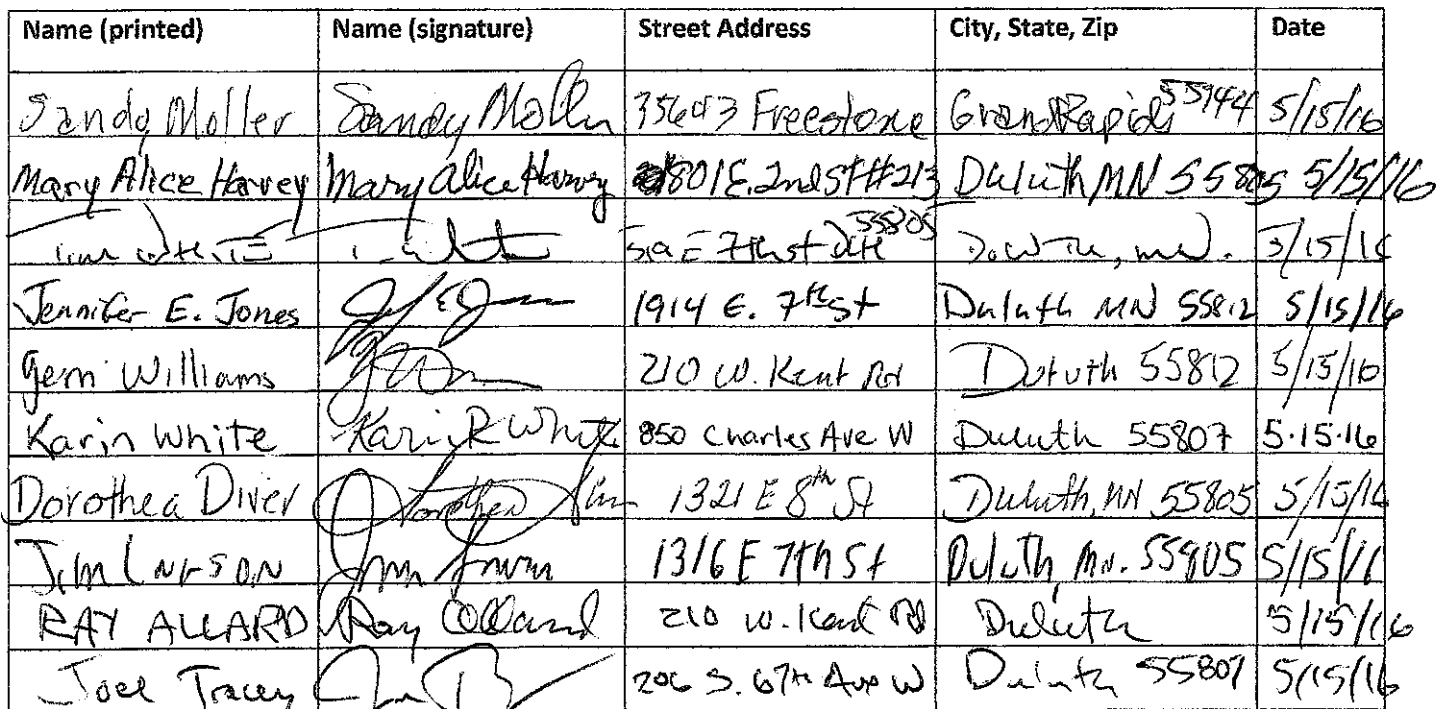 Name (printed) Name (signature) Street Address City, State, Zip Date
Sandy Moller Sandy Moller 35643 Freestone Grand Rapids 55744 5/15/16
Mary Alice Harvey Mary Alice Harvey 801 E. 2nd St #213 Duluth MN 55805 5/15/16
E 7th st 55805 5/15/16
Jennifer E. Jones 1914 E. 7th St Duluth MN 55812 5/15/16
Gerri Williams 210 W. Kent Rd Duluth 55812 5/15/16
Karin White Karin R White 850 Charles Ave W Duluth 55807 5.15.16
Dorothea Diver Dorothea Diver 1321 E 8th St Duluth, MN 55805 5/15/16
Jim Larson Jim Larson 1316 E 7th St Duluth, Mn. 55805 5/15/16
RAY ALLARD Ray Allard 210 W. Kent Rd Duluth 5/15/16
Joel Tracey 206 S. 67th Ave W Duluth 55807 5/15/16